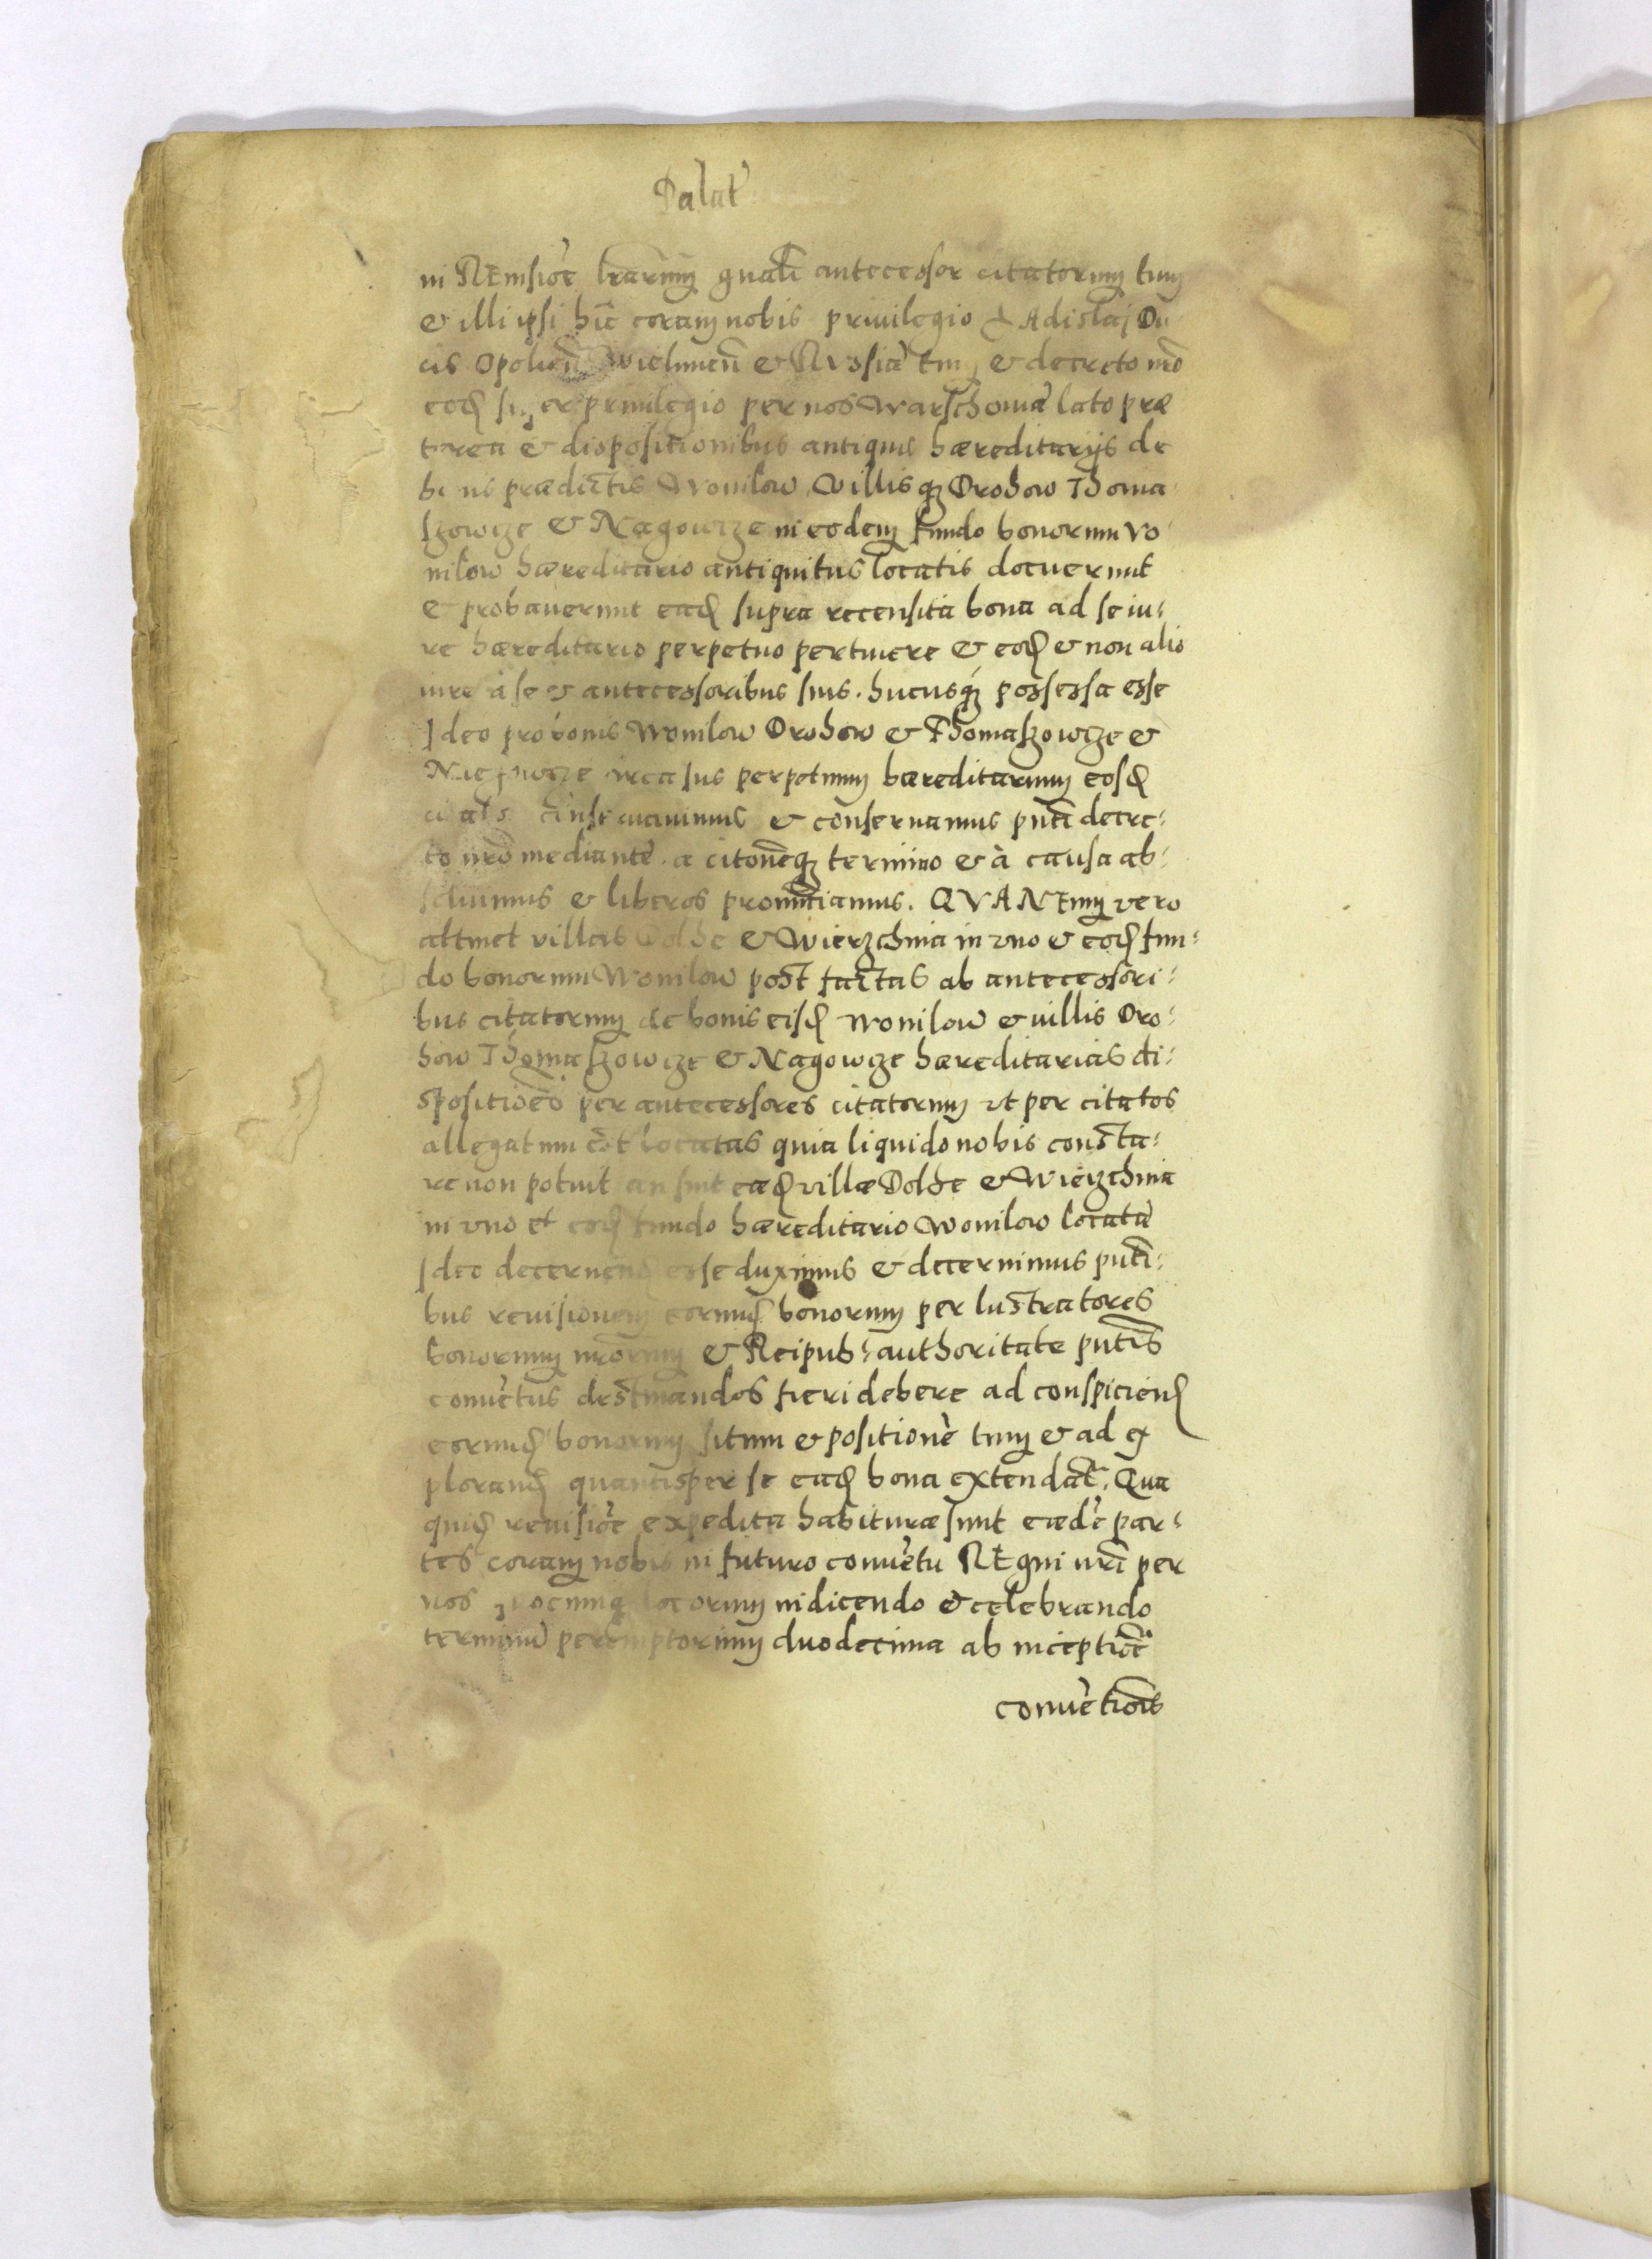 Palat
in REuisiõe lrarum gnali antecessor citatorum tum
& illi ipsi hic coram nobis priuilegio Vladislaj Du
cis Opolien Wielunen & Russiæ tum & decreto nro
eod super priuilegio per nos Warschouiæ lato præ
terea & dispositionibus antiquis hæreditarijs de
bonis prædictis Wonilow Villisq Orohow Thoma
szowcze & Nagowcze in eodem fundo bonorum Vo
nilow hæreditario antiquitus locatis docuerunt
& probauerunt ead supra recensita bona ad se iu:
re hæreditario perpetuo pertinere & eod & non alio
iure à se & antecessoribus suis hucusq possessa esse
Ideo pro bonis Wonilow Orohow & Thomaszowcze &
Nagowcze circa ius perpetuum hæreditarium eosd
citatos conseruauimus & conseruamus pnti decre:
to nro mediante. a citoneq termino & à causa ab:
soluimus & liberos pronunciamus. QVANTum vero
attinet villas Dolhe & Wierzchnia in vno & eod fun:
do bonorum Wonilow post factas ab antecessori:
bus citatorum de bonis eisd Wonilow & villis Oro:
how Thomaszowcze & Nagowcze hæreditarias di:
spositiões per antecessores citatorum vt per citatos
allegatum est locatas quia liquido nobis consta:
re non potuit an sint eæd villæ Dolhe & Wierzchnia
in vno et eod fundo hæreditario Wonilow locatæ
Ideo decernend esse duximus & decernimus pnti:
bus reuisionem eorund bonorum per lustratores
bonorum nrorum & Reipub: authoritate pntis
conuetus destinandos fieri debere ad conspiciend
eorund bonorum situm & positionè tum & ad ex
plorand quantisper se ead bona extendãt. Qua
quid reuisiõe expedita habituræ sunt eædè par:
tes coram nobis in futuro conuètu REgni nri per
nos quocunq locorum indicendo & celebrando
terminũ peremptorium duodecima ab inceptiõe
conuètionis